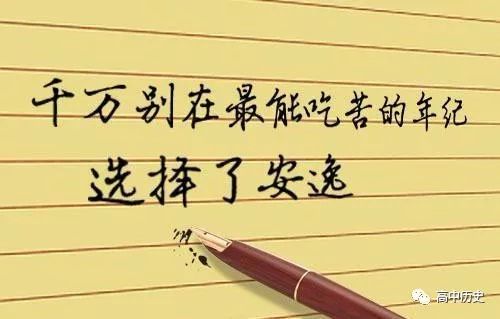 千万别在最能吃苦的年纪
选择了安逸
高中历史